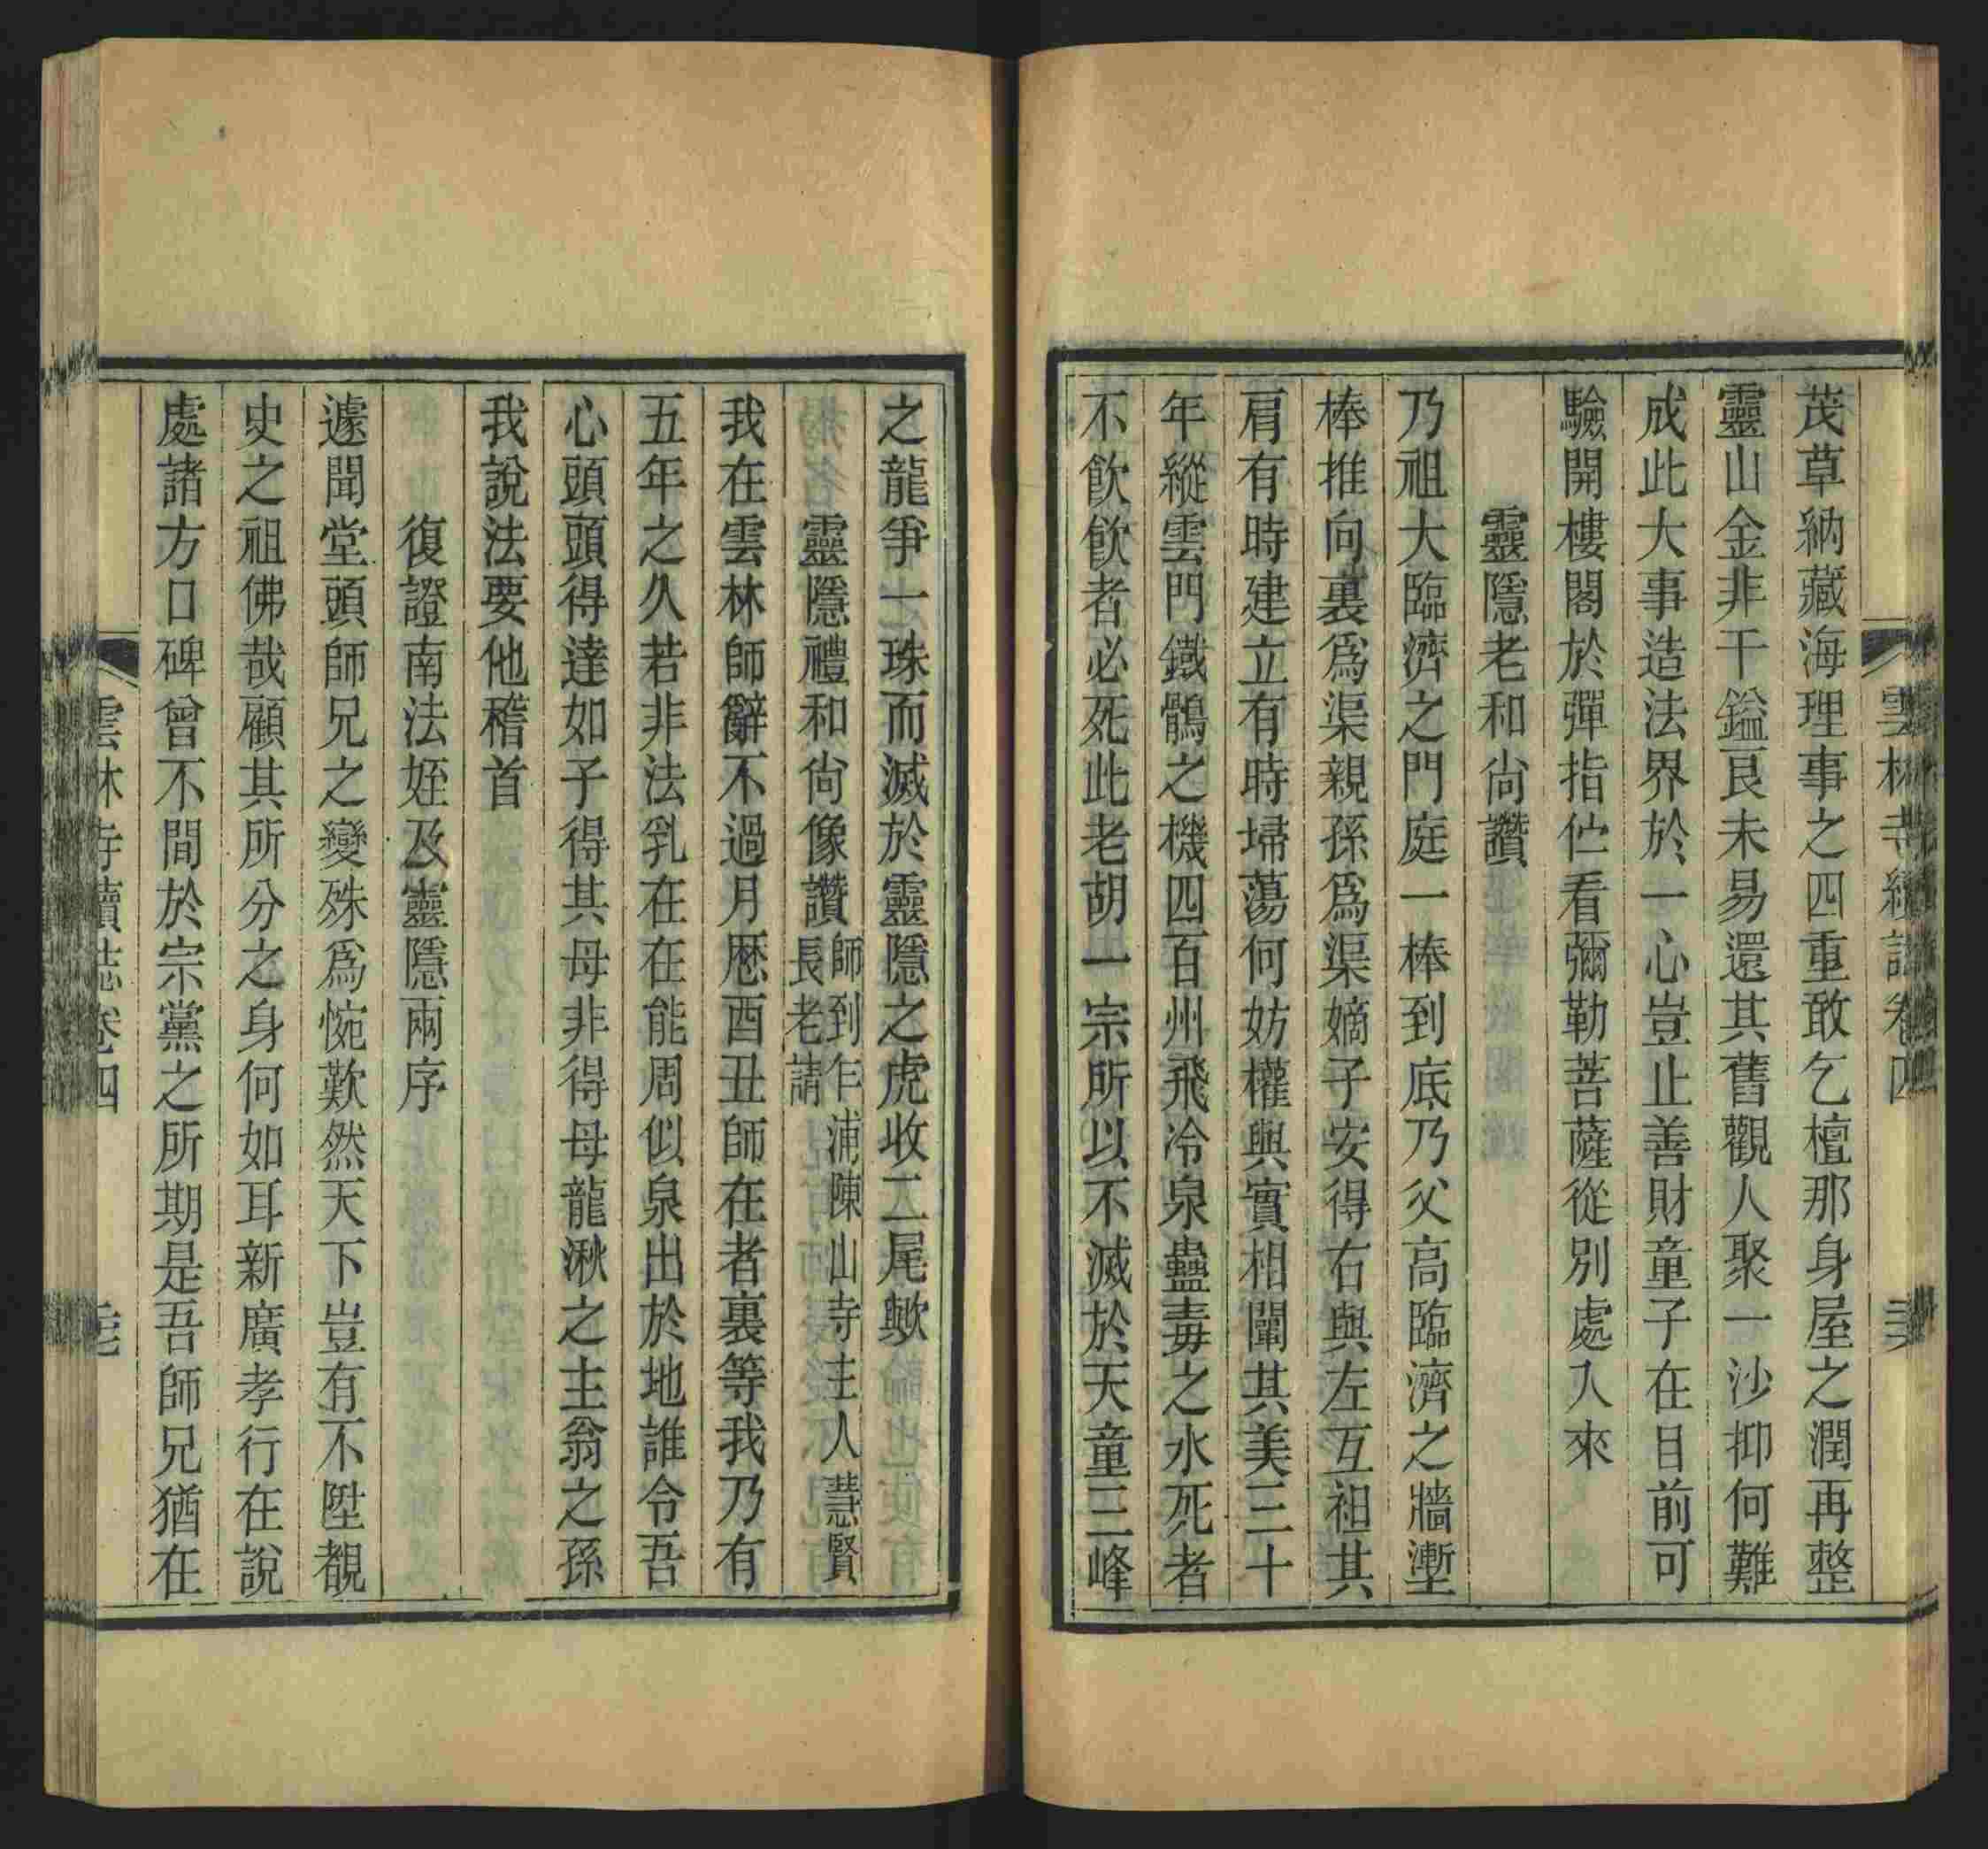 雲林寺續誌卷四
茂草納藏海理事之四重敢乞檀那身屋之潤再整
靈山金非干鎰艮未易還其舊觀人聚一沙抑何難
成此大事造法界於一心豈止善財童子在目前可
驗開樓閣於彈指伫看彌勒菩薩從別處入來
靈隱老和尙讚
乃祖大臨濟之門庭一棒到底乃父高臨濟之牆塹
棒推向裏爲渠親孫爲渠嫡子安得右與左互祖其
肩有時建立有時埽蕩何妨權與實相闡其美三十
年縱雲門鐵鶻之機四百州飛冷泉蠱毒之水死者
不飮飮者必死此老胡一宗所以不滅於天童三峰
之龍爭一珠而滅於靈隱之虎收二尾歟
靈隱禮和尙像讚師到乍浦陳山寺主人慧賢長老請
我在雲林師辭不過月厯酉丑師在者裏等我乃有
五年之久若非法乳在在能周似泉出於地誰令吾
心頭頭得達如子得其母非得母龍湫之主翁之孫
我說法要他稽首
復證南法姪及靈隱兩序
遽聞堂頭師兄之變殊爲惋歎然天下豈有不陞覩
史之祖佛哉顧其所分之身何如耳新廣孝行在說
處諸方口碑曾不間於宗黨之所期是吾師兄猶在
雲林寺續誌卷四